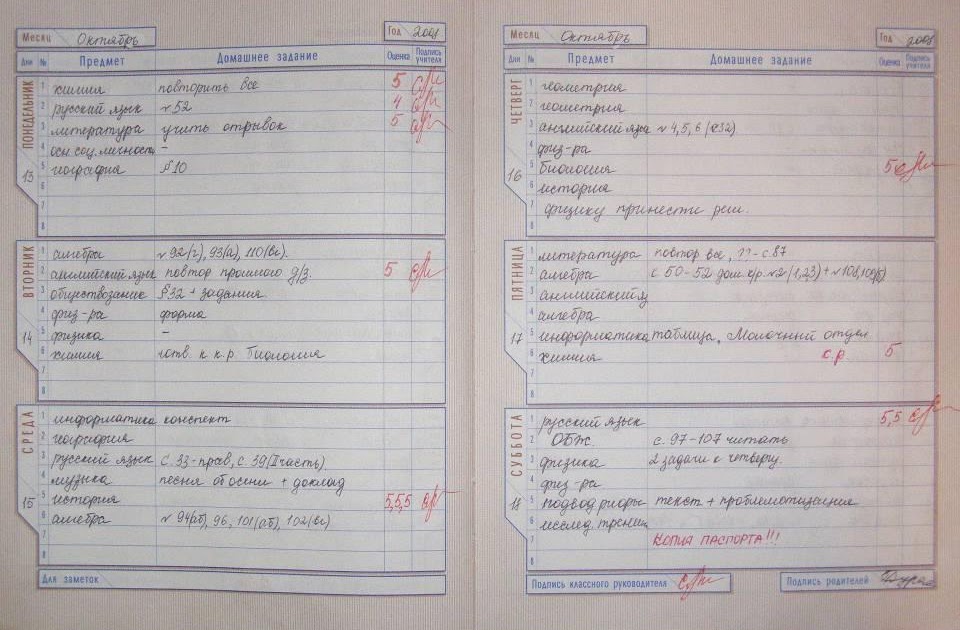 Месяц Октябрь Год
Дни № Предмет Домашнее задание Оценка Подпись учителя
ПОНЕДЕЛЬНИК 13
1 химия повторить все 5
2 русский язык № 52 4
3 литература учить отрывок 5
4 осн. соц. личност -
5 география §10
6
7
8
ВТОРНИК 14
1 алгебра № 92(г), 93(а), 110(вг).
2 английский язык повтор прошлого д/з. 5
3 обществознание §32 + задания
4 физ-ра форма
5 физика -
6 химия готв. к к.р. биология
7
8
СРЕДА 15
1 информатика конспект
2 география
3 русский язык с. 33-прав, с. 39 (II часть).
4 музыка песня об осени + доклад
5 история 5,5,5
6 алгебра № 94(аб), 96, 101(аб), 102(вг)
7
8
Для заметок
Месяц Октябрь Год
Дни № Предмет Домашнее задание Оценка Подпись учителя
ЧЕТВЕРГ 16
1 геометрия
2 геометрия
3 английский язык № 4,5,6 (с32)
4 физ-ра
5 биология 5
6 история
7 физику принести реш.
8
ПЯТНИЦА 17
1 литература повтор все, ??- с.87
2 алгебра с. 50-52 дом. к/р. №2 (1,2,3) + № 108,
3 английский я
4 алгебра
5 информатика таблица. Молочный отдел
6 химия к.р. 5
7
8
СУББОТА 18
1 русский язык 5,5
2 ОБЖ с. 97-107 читать
3 физика 2 задачи к четвергу.
4 физ-ра
5 текст + проблематизация
6 исслед. тренинг
7 КОПИЯ ПАСПОРТА!!!
8
Подпись классного руководителя
Подпись родителей